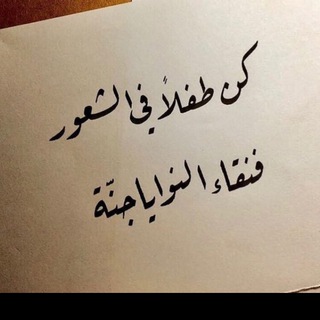 كن طفلاً في الشعور
فنقاء النوايا جنّة